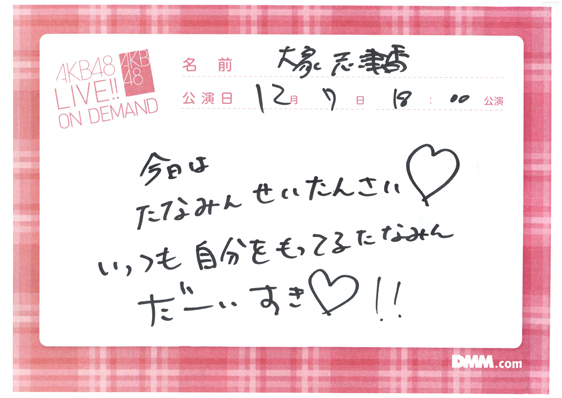 AKB48
LIVE!!
ON DEMAND
AKB
48
名前 大家志津香
公演日 12月7日 18:00公演
今日は
たなみんせいたんさい♡
いつも自分をもってるたなみん
だーいすき♡!!
DMM.com